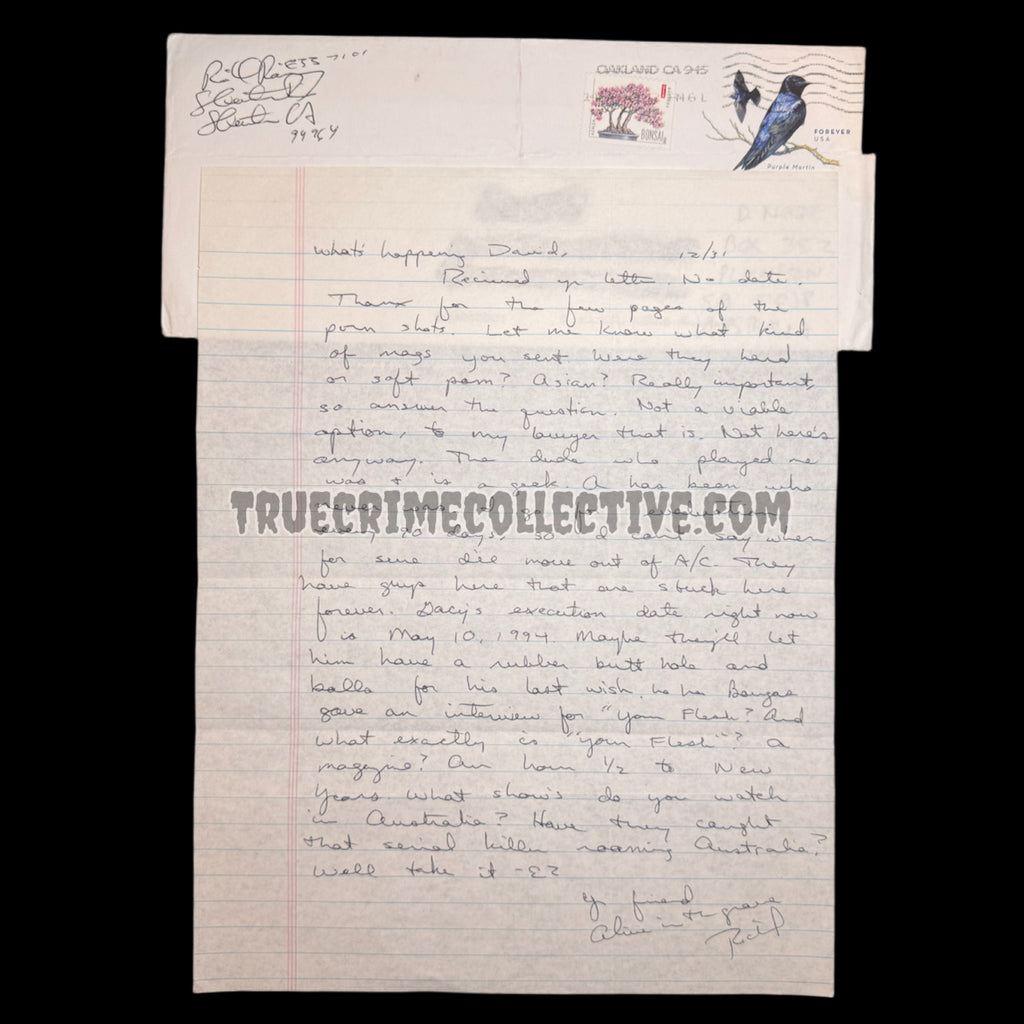 OAKLAND CA 945
BONSAI
FOREVER
USA
Purple Martin
What's happening David, 12/31
Recieved yr letter. No date.
Thanx for the few pages of the
porn shots. Let me know what kind
of mags you sent. Were they hard
or soft porn? Asian? Really important,
so answer the question. Not a viable
option, to my lawyer that is. Not here's
anyway. The dude who played me
was & is a geek. A has been who
never was. I go for evaluation
TRUECRIMECOLLECTIVE.COM
every 90 days so I cant say when
for sure I'll move out of A/C. They
have guys here that are stuck here
forever. Gacy's execution date right now
is May 10, 1994. Maybe they'll let
him have a rubber butt hole and
balls for his last wish. ha ha
gave an interview for "Your Flesh? And
what exactly is "Your Flesh"? a
magazine? An hour 1/2 to New
Years. What show's do you watch
in Australia? Have they caught
that serial killer roaming Australia?
Well take it -EZ
Yr friend
Alive in the grave